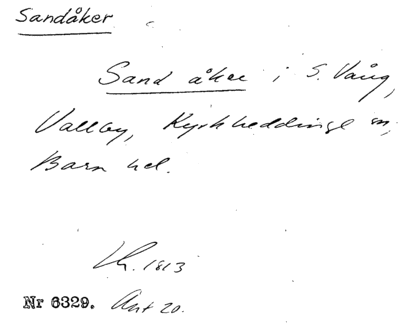 Sandåker
Sand åker i S. Vång,
Vallby, Kyrkheddinge sn,
Bara hd.
Lr. 1813
Nr 6329. Akt 20.